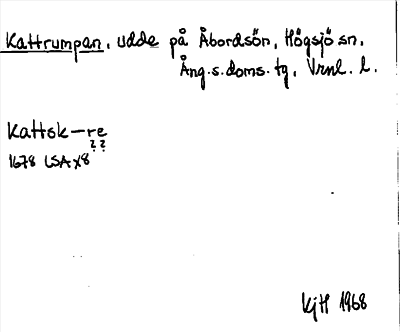 Kattrumpan, udde på Åbordsön, Högsjö sn,
Ång.s.doms.tg, Vrnl. l.
Kattsk—re
??
1678 LSA X8
KjH 1968